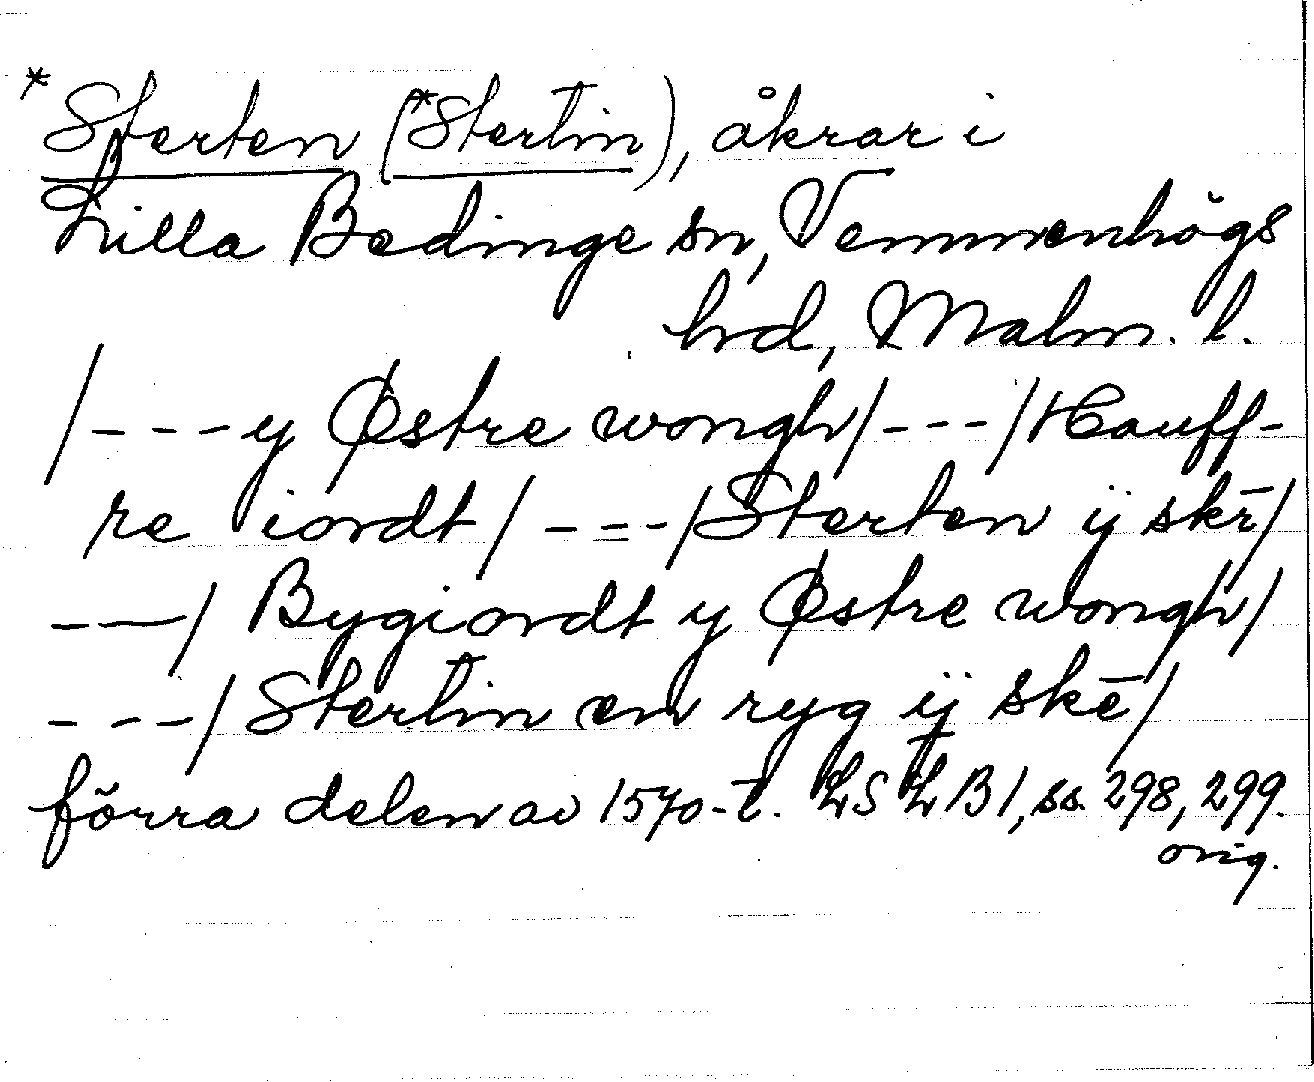 *Sterten (*Stertin), åkrar i
Lilla Bedinge sn, Vemmenhögs
hrd, Malm. l.
/---y Østre wongh/---/Hauff-
re iordt/---/Sterten ÿ skē/
---/ Bygiordt y Østre wongh/
---/ Stertin en ryg ÿ skē/
förra delen av 1570-t. LSLB1, ss. 298, 299.
orig.